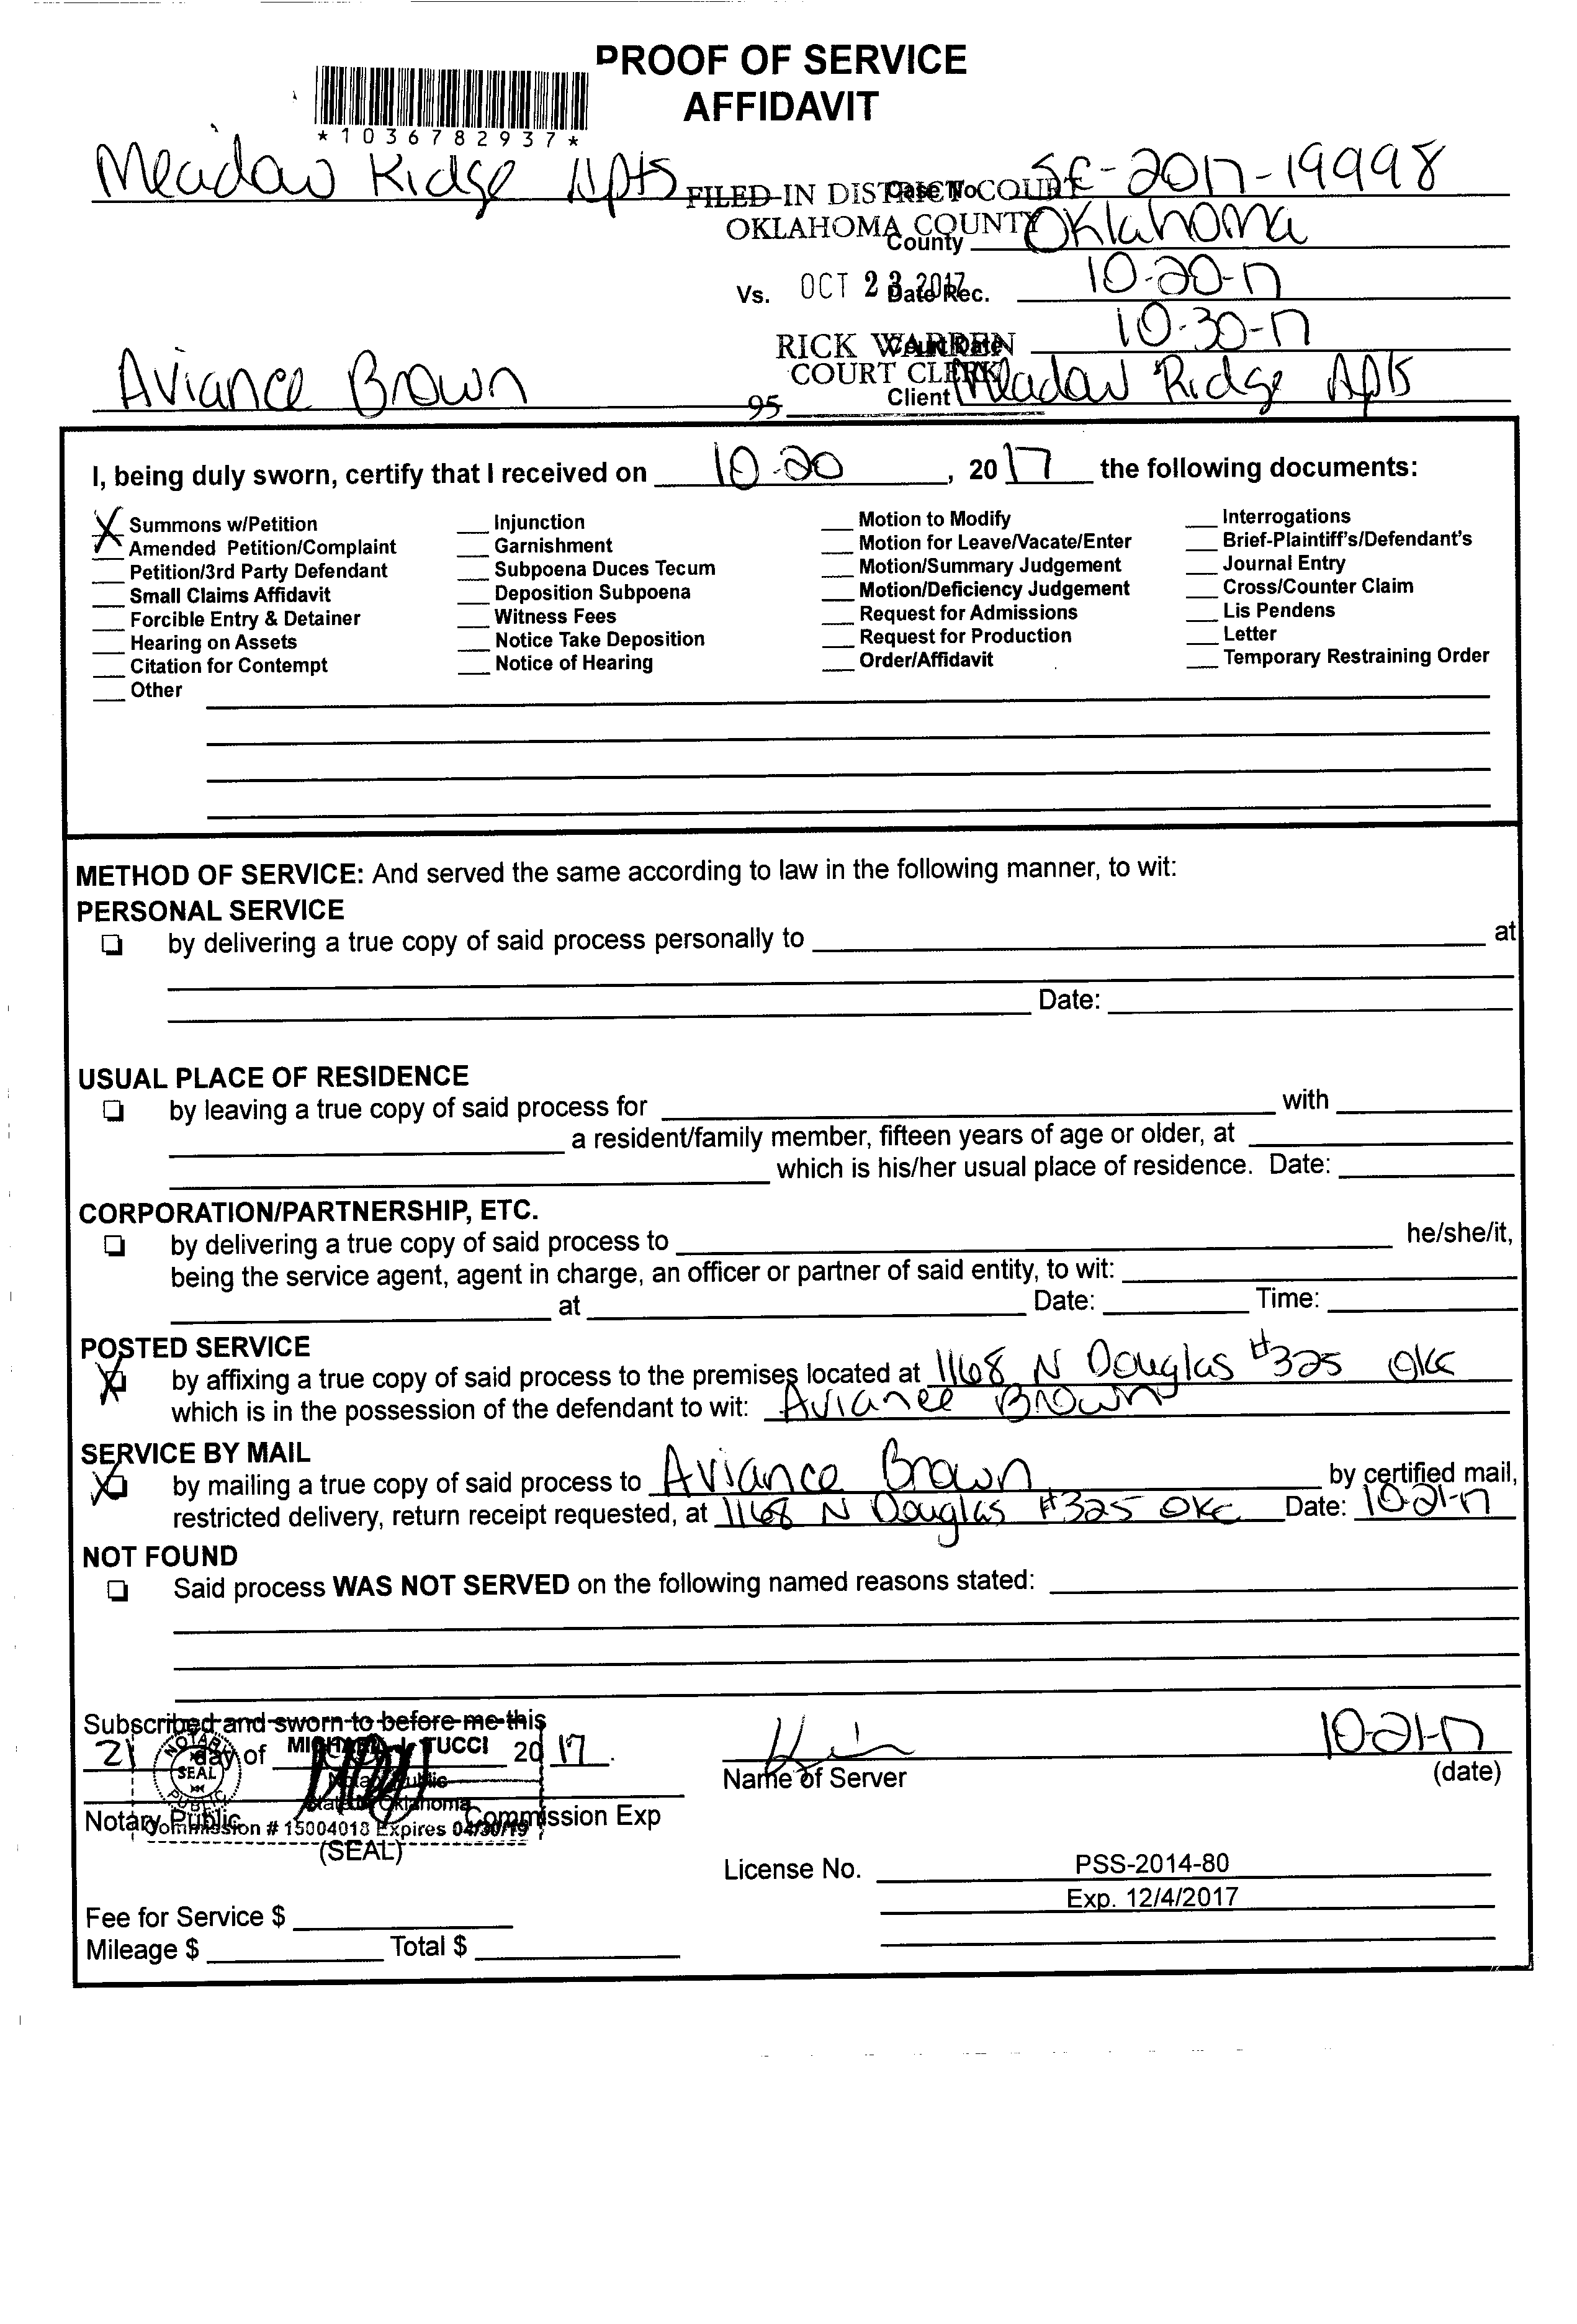 PROOF OF SERVICE
AFFIDAVIT
*1036782937*
Meadow Ridge Apts
FILED IN DISTRICT COURT
OKLAHOMA COUNTY
Case No. SC-2017-19998
County Oklahoma
Vs. OCT 23 2017 Date Rec. 10-20-17
RICK WARREN
COURT CLERK
Court Date 10-30-17
Aviance Brown 95 Client Meadow Ridge Apts
I, being duly sworn, certify that I received on 10-20, 2017 the following documents:
X Summons w/Petition
Amended Petition/Complaint
Petition/3rd Party Defendant
Small Claims Affidavit
Forcible Entry & Detainer
Hearing on Assets
Citation for Contempt
Other
Injunction
Garnishment
Subpoena Duces Tecum
Deposition Subpoena
Witness Fees
Notice Take Deposition
Notice of Hearing
Motion to Modify
Motion for Leave/Vacate/Enter
Motion/Summary Judgement
Motion/Deficiency Judgement
Request for Admissions
Request for Production
Order/Affidavit
Interrogations
Brief-Plaintiff's/Defendant's
Journal Entry
Cross/Counter Claim
Lis Pendens
Letter
Temporary Restraining Order
METHOD OF SERVICE: And served the same according to law in the following manner, to wit:
PERSONAL SERVICE
by delivering a true copy of said process personally to at
Date:
USUAL PLACE OF RESIDENCE
by leaving a true copy of said process for with
a resident/family member, fifteen years of age or older, at
which is his/her usual place of residence. Date:
CORPORATION/PARTNERSHIP, ETC.
by delivering a true copy of said process to he/she/it,
being the service agent, agent in charge, an officer or partner of said entity, to wit:
at Date: Time:
POSTED SERVICE
X by affixing a true copy of said process to the premises located at 1168 N Douglas #325 OKC
which is in the possession of the defendant to wit: Aviance Brown
SERVICE BY MAIL
X by mailing a true copy of said process to Aviance Brown by certified mail,
restricted delivery, return receipt requested, at 1168 N Douglas #325 OKC Date: 10-21-17
NOT FOUND
Said process WAS NOT SERVED on the following named reasons stated:
Subscribed and sworn to before me this
21 day of 2017.
NOTARY PUBLIC SEAL
MICHAEL J. TUCCI
Notary Public
State of Oklahoma
Commission # 15004018 Expires 04/30/19
Notary Public Commission Exp
(SEAL)
10-21-17
Name of Server (date)
License No. PSS-2014-80
Exp. 12/4/2017
Fee for Service $
Mileage $ Total $